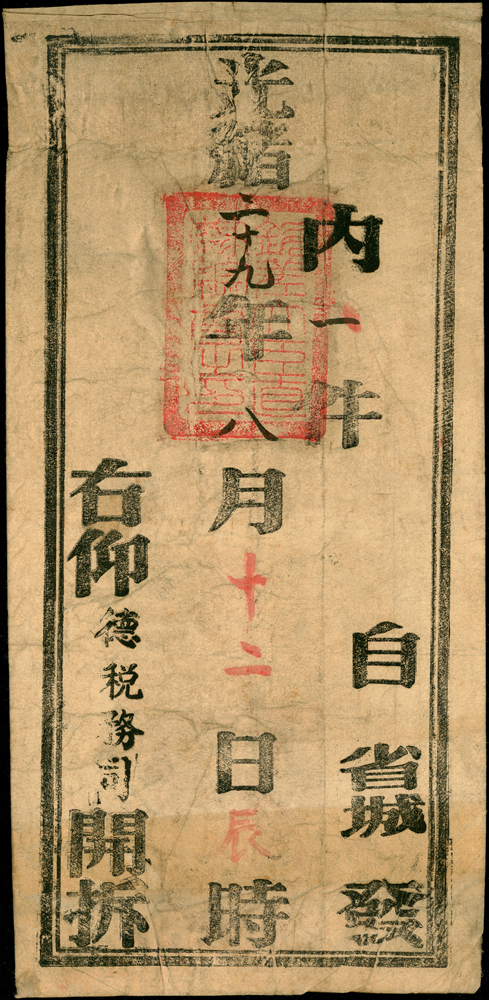 自省城發
內一件
光緒二十九年八月十二日辰時
右仰德稅務司開拆